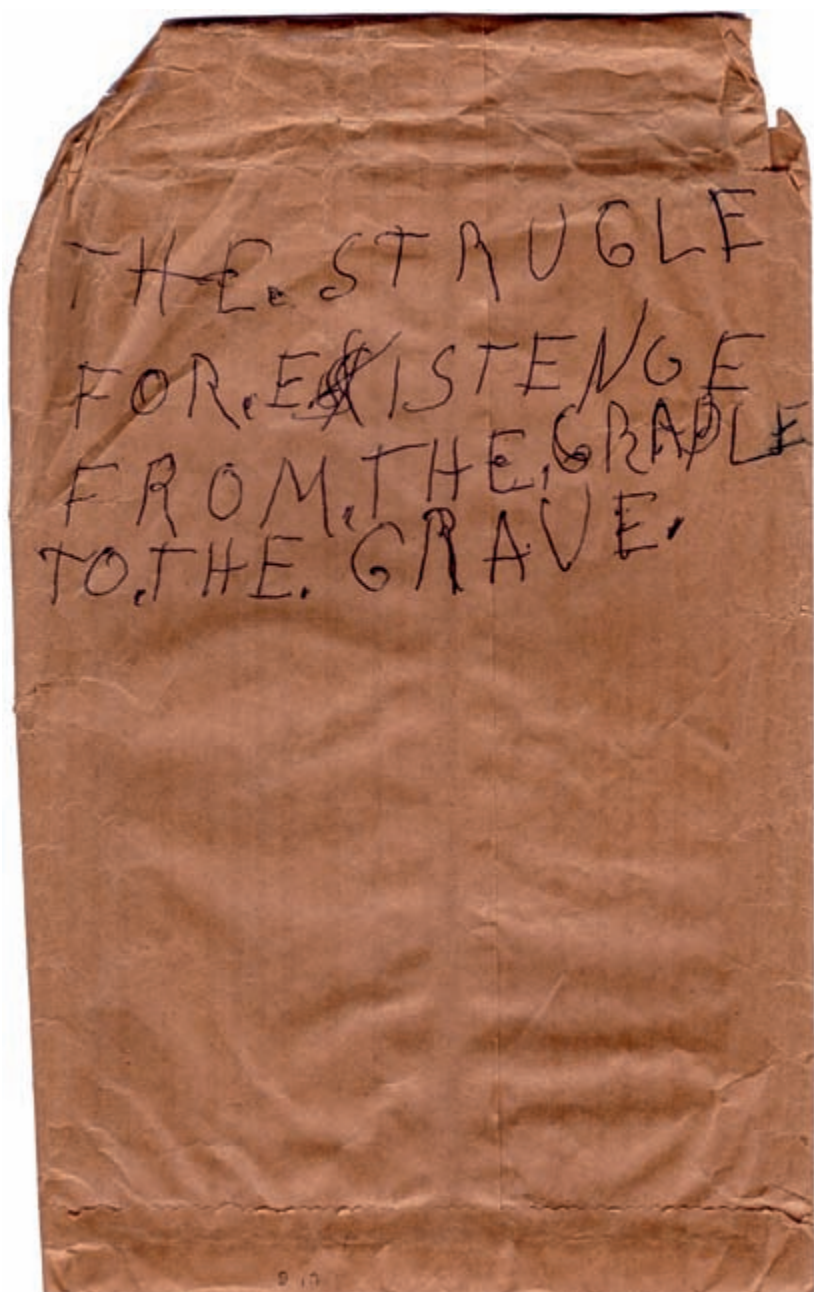 THE. STRUGLE
FOR. EXISTENGE
FROM. THE. GRADLE
TO. THE. GRAVE.